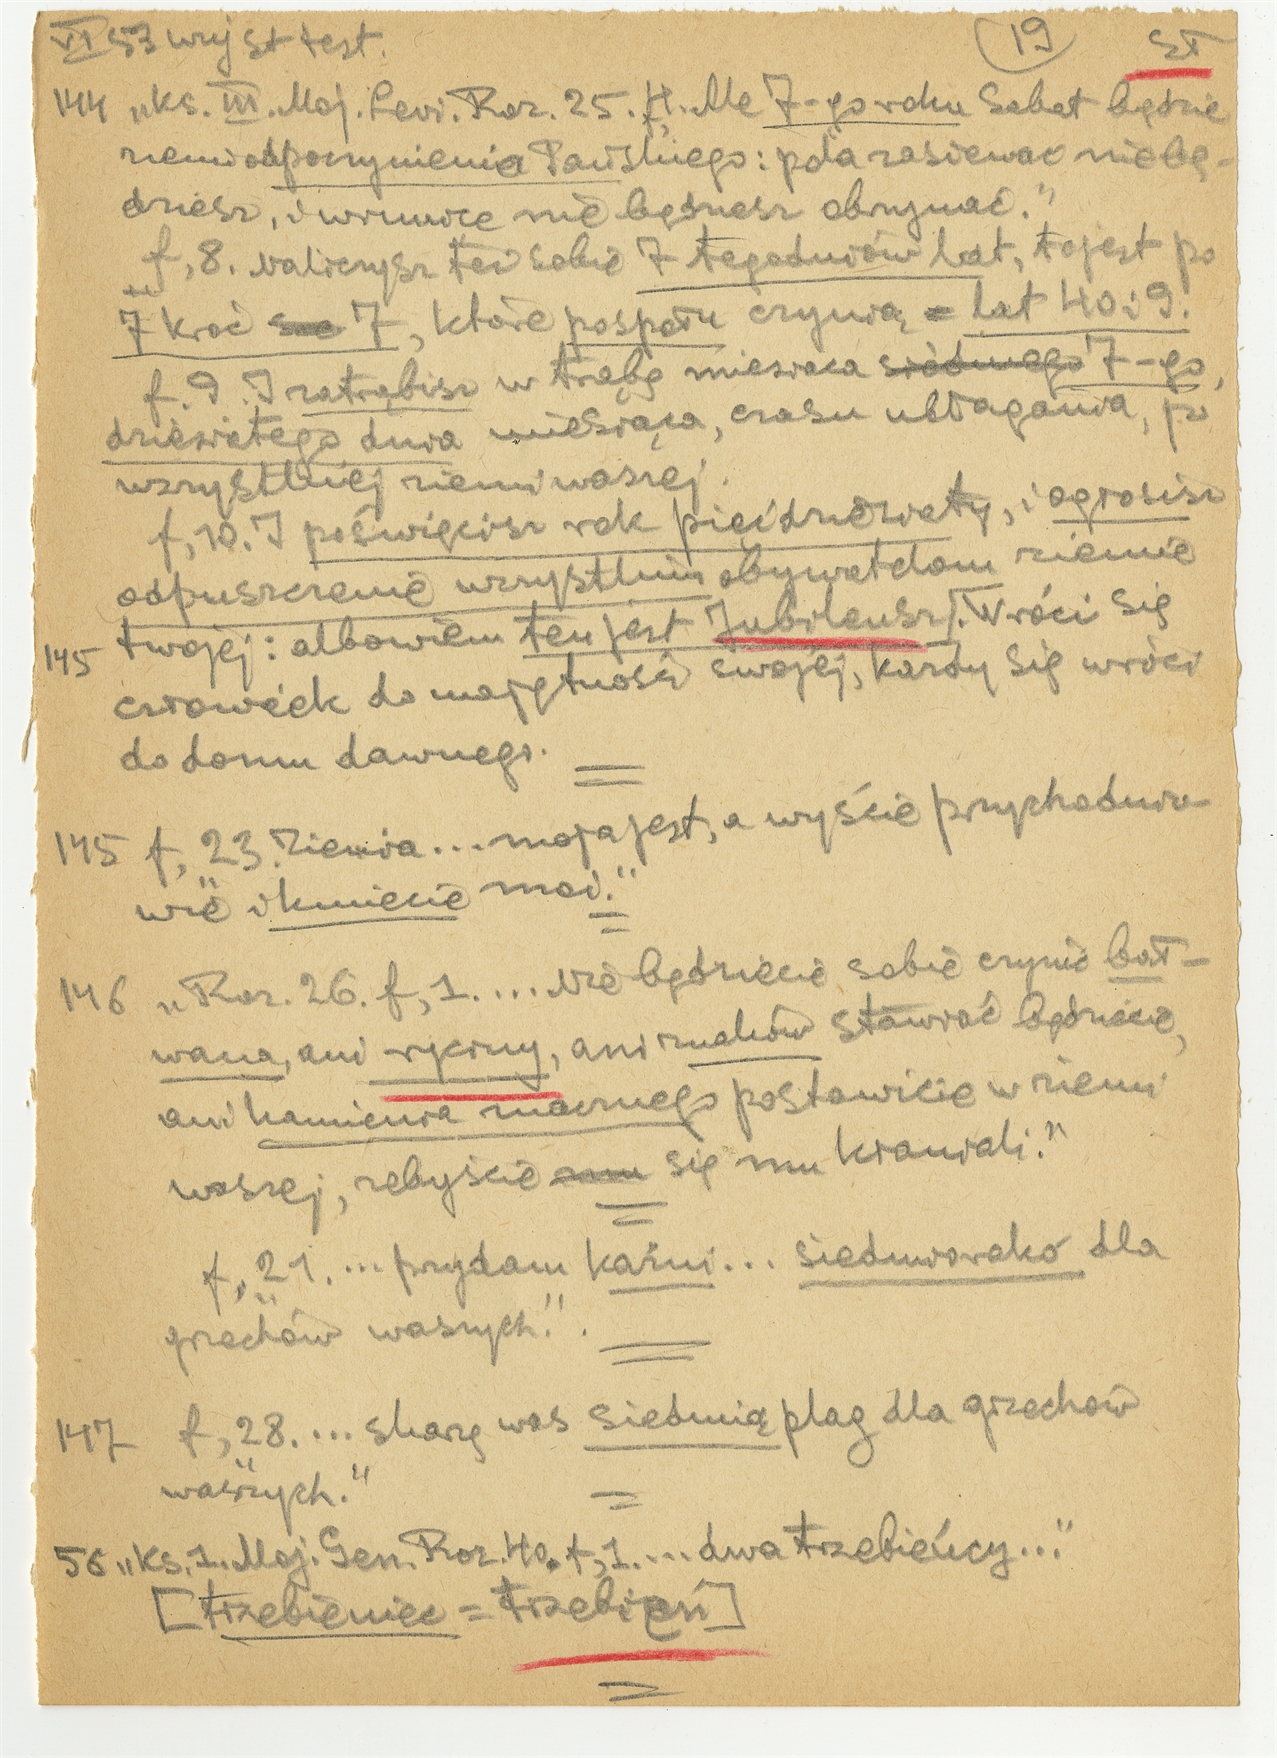 VI 53 wyj st test. 19 ST
144 „Ks. III. Moj. Levi. Roz. 25. f, 4. Ale 7-go roku Sabat będzie
ziemi odpoczynienia Pańskiego: pola zasiewać nie bę-
dziesz, i winnice nie będziesz obrzynać."
f, 8. Naliczysz też sobie 7 tegodniów lat, to jest po
7 kroć 7, które pospołu czynią = lat 40 i 9.
f. 9. I zatrąbisz w trąbę miesiąca siódmego 7-go,
dziesiątego dnia miesiąca, czasu ubłagania, po
wszystkiej ziemi waszej.
f, 10. I poświęcisz rok pięćdziesiąty, i ogłosisz
odpuszczenie wszystkim obywatelom ziemie
twojej: albowiem ten jest Jubileusz/. Wróci się
145 człowiek do majętności swojej, każdy się wróci
do domu dawnego.
145 f, 23. Ziemia... moja jest, a wyście przychodnio-
wie i kmiecie moi."
146 „Roz. 26. f, 1. ... Nie będziecie sobie czynić bał-
wana, ani ryciny, ani znaków stawiać będziecie,
ani kamienia znacznego postawicie w ziemi
waszej, żebyście się mu kłaniali."
f, 21. ... przydam kaźni... siedmiorako dla
grzechów waszych.".
147 f, 28. ... skarzę was siedmią plag dla grzechów
waszych."
56 „Ks. 1. Moj. Gen. Roz. 40. f, 1. ... dwa trzebieńcy..."
[trzebieniec = trzebień]